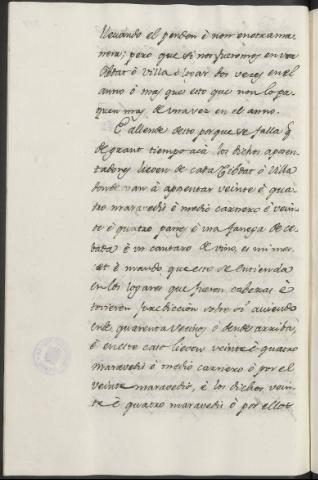 llevando el pendon è non en otra ma
nera; pero que si nos fueremos en vna
Cibdat ò villa ò logar dos veces en el
anno ò mas que esto que non lo pa
guen mas de vna vez en el anno.
E allende desto porque se falla q̃
de grant tiempo acà los dichos aposen
tadores lieven de cada Cibdat ò Villa
donde van à aposentar veinte è qua
tro maravedis è medio carnero è vein
te è quatro panes è vna fanega de ce
bada è vn cantaro de vino, es mi mer
cet è mando que esto se entienda
en los logares que fueren cabezas è
tovieren juredicción sobre si aviendo
ende quarenta vecinos ò dende arriba,
è en este caso lieven veinte è quatro
maravedis è medio carnero ò por el
veinte maravedis, è los dichos vein
te è quatro maravedis ò por ellos